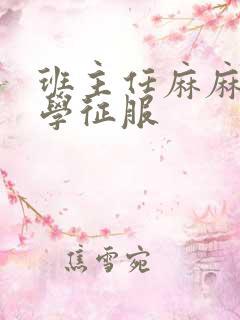 班主任麻麻
學征服
焦雪宛